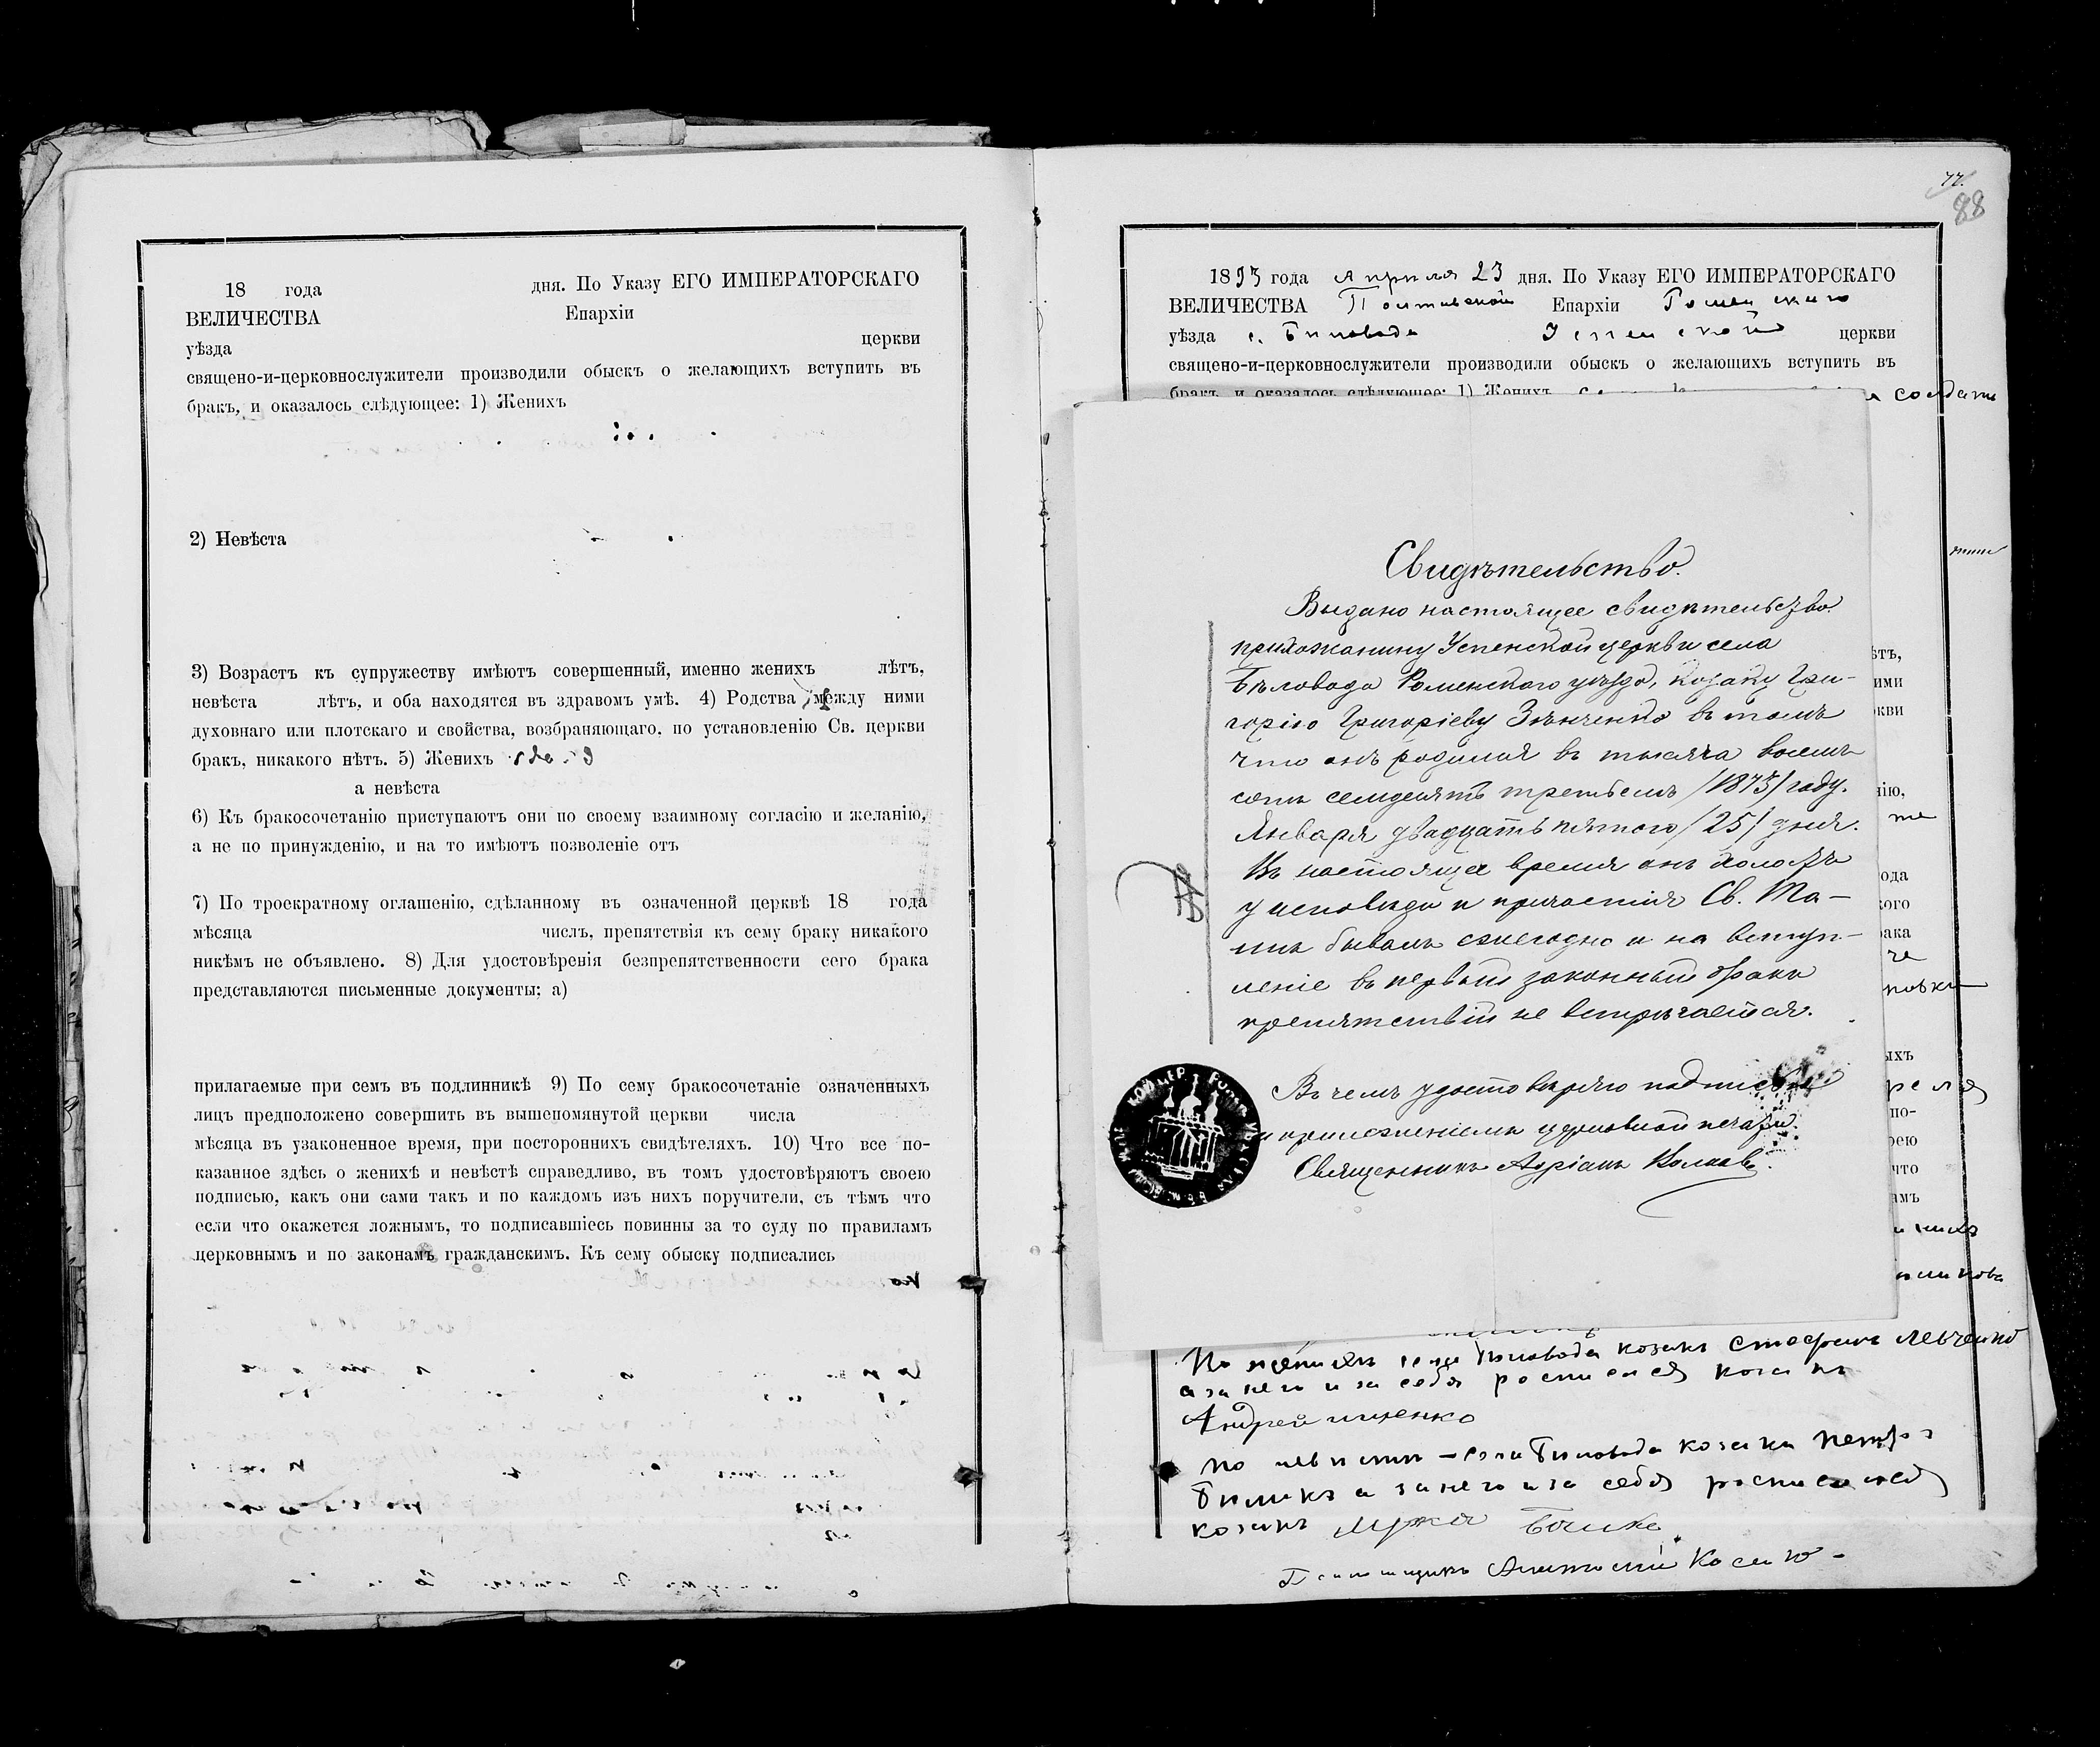 18 года дня. По Указу ЕГО ИМПЕРАТОРСКАГО
ВЕЛИЧЕСТВА Епархіи
уѣзда церкви
священо-и-церковнослужители производили обыскъ о желающихъ вступить въ
бракъ, и оказалось слѣдующее: 1) Женихъ
2) Невѣста
3) Возрастъ къ супружеству имѣютъ совершенный, именно женихъ лѣтъ,
невѣста лѣтъ, и оба находятся въ здравомъ умѣ. 4) Родства между ними
духовнаго или плотскаго и свойства, возбраняющаго, по установленію Св. церкви
бракъ, никакого нѣтъ. 5) Женихъ
а невѣста
6) Къ бракосочетанію приступаютъ они по своему взаимному согласію и желанію,
а не по принужденію, и на то имѣютъ позволеніе отъ
7) По троекратному оглашенію, сдѣланному въ означенной церквѣ 18 года
мѣсяца числъ, препятствія къ сему браку никакого
никѣмъ не объявлено. 8) Для удостовѣренія безпрепятственности сего брака
представляются письменные документы: а)
прилагаемые при семъ въ подлинникѣ 9) По сему бракосочетаніе означенныхъ
лицъ предположено совершить въ вышепомянутой церкви числа
мѣсяца въ узаконенное время, при постороннихъ свидѣтеляхъ. 10) Что все по-
казанное здѣсь о женихѣ и невѣстѣ справедливо, въ томъ удостовѣряютъ своею
подписью, какъ они сами такъ и по каждомъ изъ нихъ поручители, съ тѣмъ что
если что окажется ложнымъ, то подписавшіесь повинны за то суду по правиламъ
церковнымъ и по законамъ гражданскимъ. Къ сему обыску подписались
77.
88
1893 года Апреля 23 дня. По Указу ЕГО ИМПЕРАТОРСКАГО
ВЕЛИЧЕСТВА Полтавской Епархіи Роменскаго
уѣзда с. Биловода Успенской церкви
священо-и-церковнослужители производили обыскъ о желающихъ вступить въ
бракъ, и оказалось слѣдующее: 1) Женихъ
Свидѣтельство.
Выдано настоящее свидѣтельство
прихожанину Успенской церкви села
Бѣловода Роменскаго уѣзда, козаку Гри-
горію Григоріеву Зѣнченко въ томъ
что онъ родился въ тысяча восемь
сотъ семдесятъ третьемъ /1873/ году.
Января двадцать пятого /25/ дня.
Въ настоящее время онъ холостъ
у исповѣди и причастія Св. Та-
инъ бываетъ ежегодно и на вступ-
леніе въ первый законный бракъ
препятствій не встрѣчается.
Въ чемъ удостовѣряю подписью
и приложеніемъ церковной печати.
Священникъ Адріанъ Волковъ.
По женихѣ села Биловода козакъ Стефанъ Левченко
а за него и за себя росписался козакъ
Андрей
по невѣсти - села Биловода козаки Петръ
Биликъ а за него и за себя росписался
козакъ Лука
Псаломщикъ Анатолій